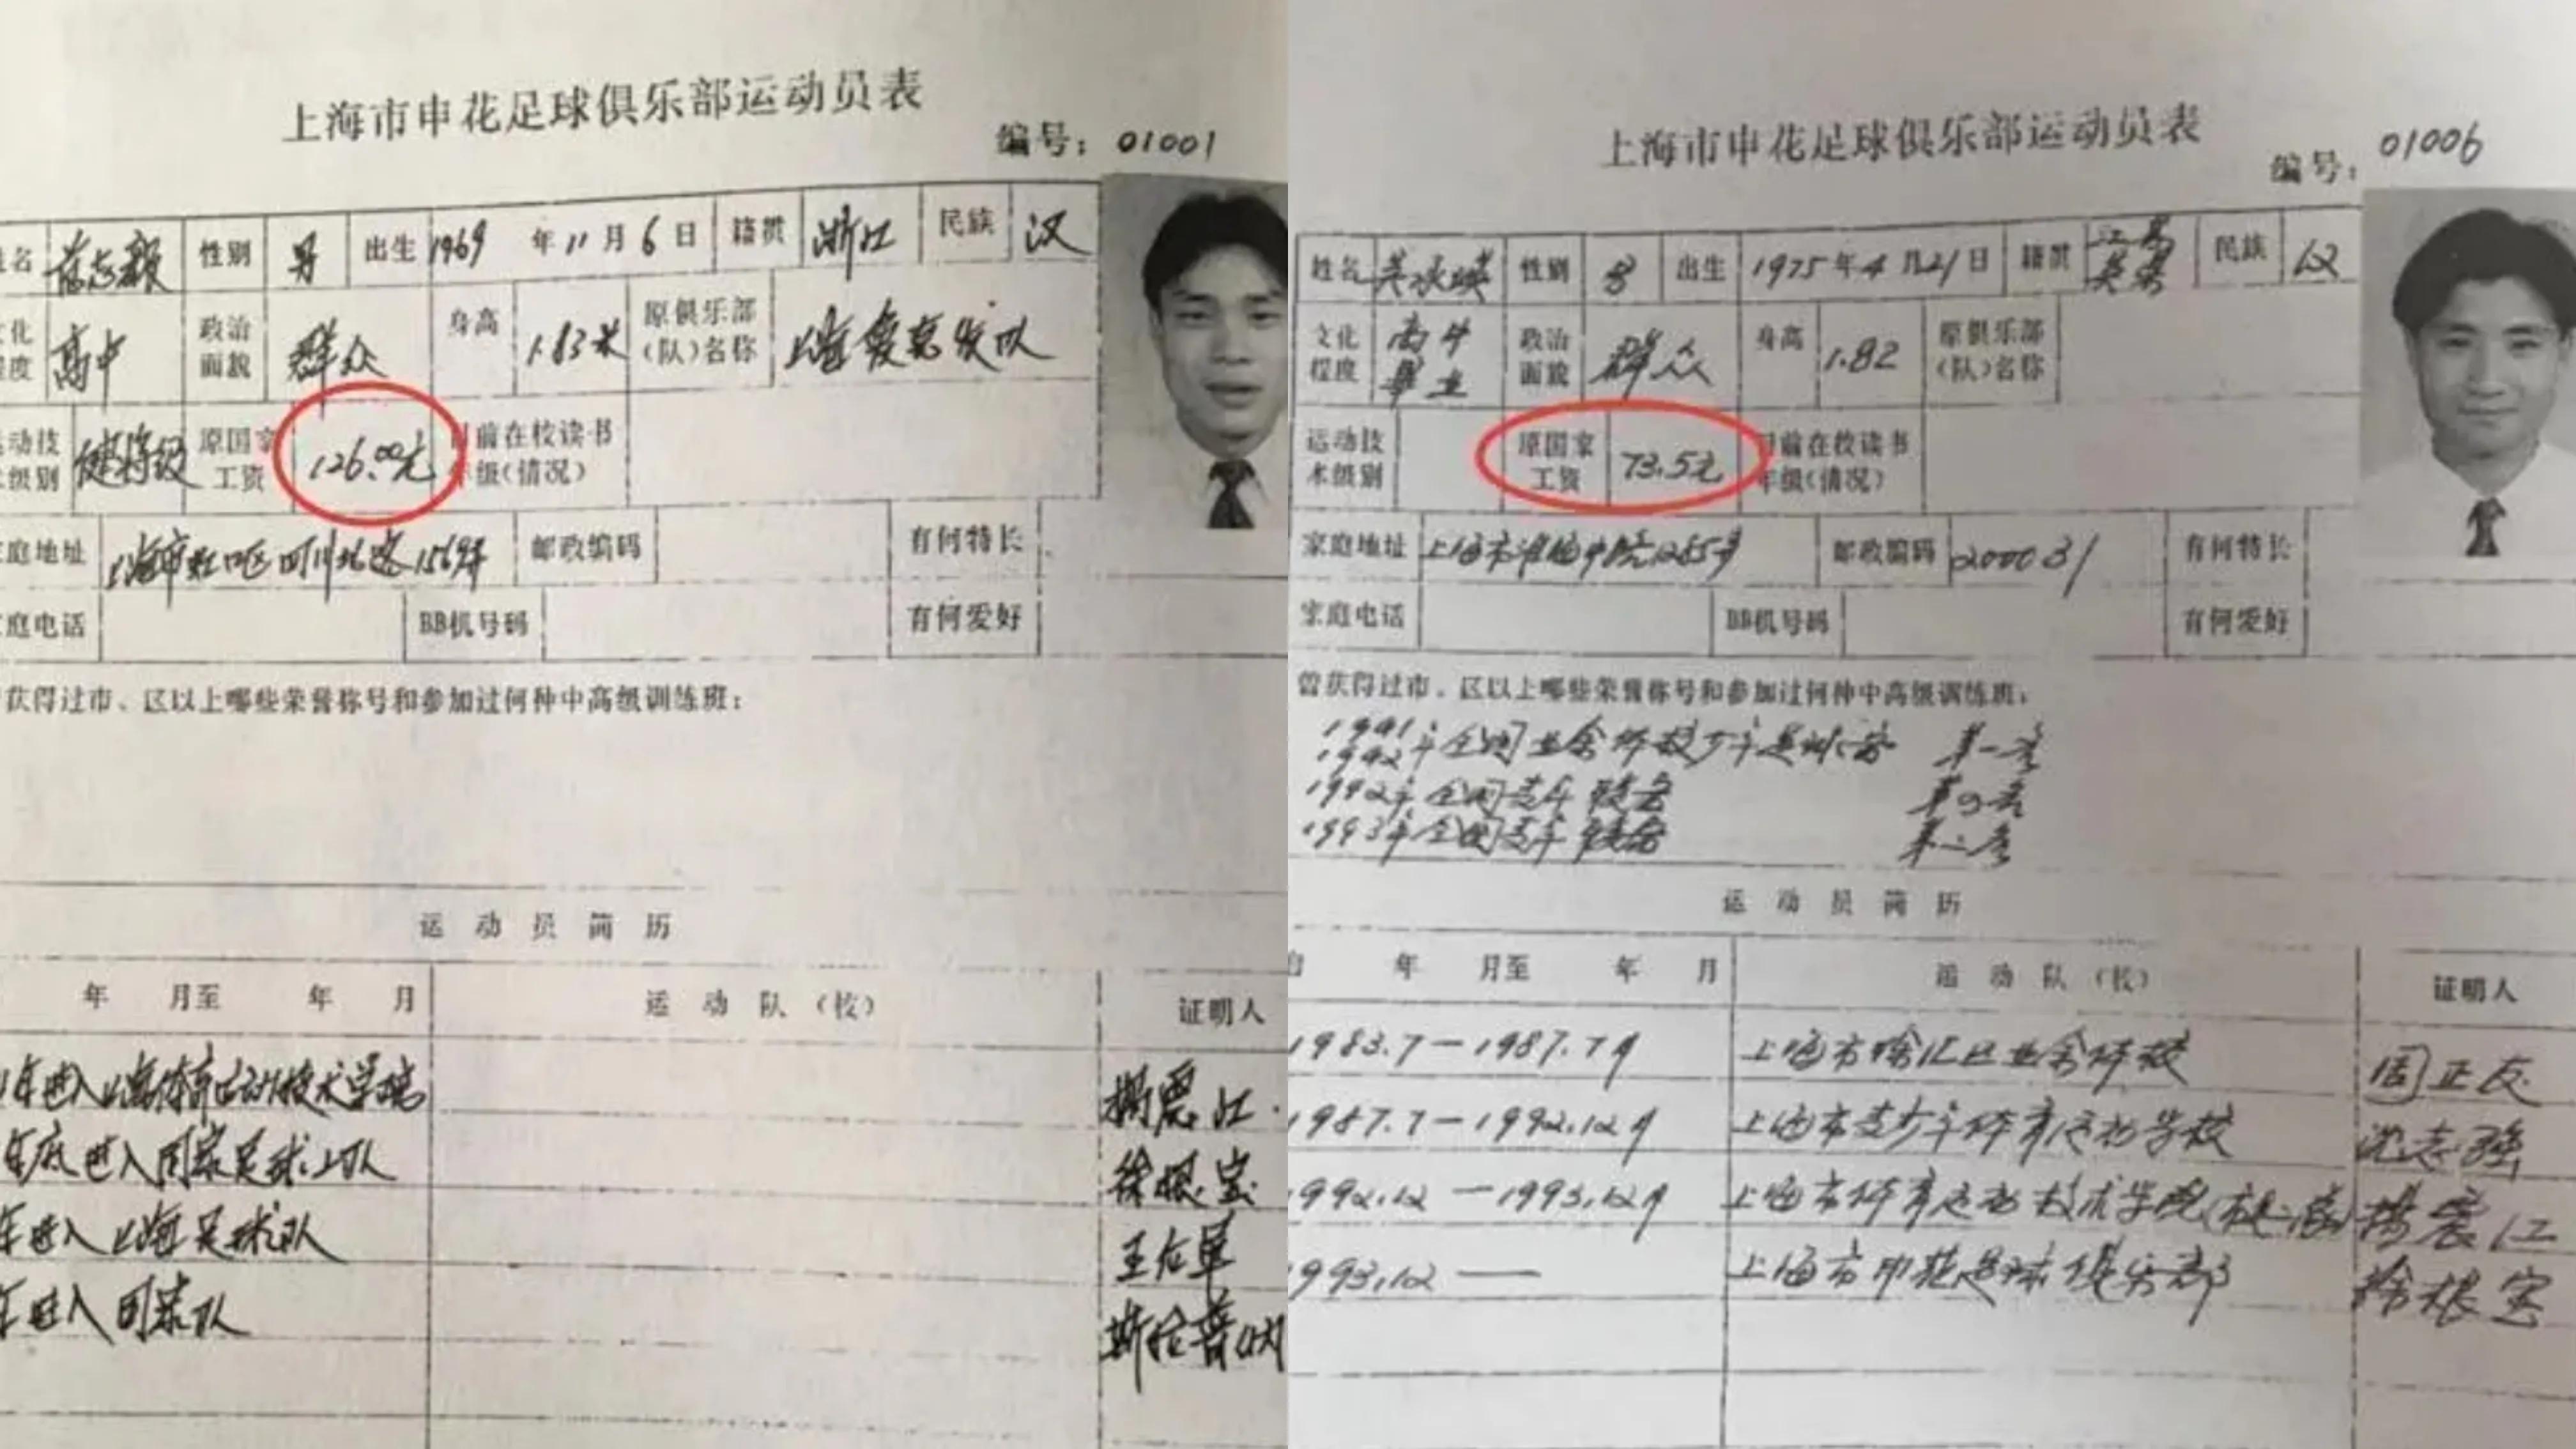 上海市申花足球俱乐部运动员表
编号：01001
姓名 范志毅 性别 男 出生 1969 年 11 月 6 日 籍贯 浙江 民族 汉
文化程度 高中 政治面貌 群众 身高 1.83米 原俱乐部(队)名称 上海
运动技术级别 健将级 原国家工资 126.00元 目前在校读书年级(情况)
家庭地址 上海市虹口区四川北路1569弄 邮政编码 有何特长
家庭电话 BB机号码 有何爱好
获得过市、区以上哪些荣誉称号和参加过何种中高级训练班：
运动员简历
年 月至 年 月 运动队（校） 证明人
年进入上海体育运动技术学院
年底进入国家足球二队 徐根宝
年进入上海足球队 王后军
年进入国家队 斯拉普纳
上海市申花足球俱乐部运动员表
编号：01006
姓名 吴承瑛 性别 男 出生 1975 年 4 月 21 日 籍贯 江苏 民族 汉
文化程度 高中毕业 政治面貌 群众 身高 1.82 原俱乐部(队)名称
运动技术级别 原国家工资 73.5元 目前在校读书年级(情况)
家庭地址 上海市淮海中路1285号 邮政编码 200031 有何特长
家庭电话 BB机号码 有何爱好
曾获得过市、区以上哪些荣誉称号和参加过何种中高级训练班：
1991
1992年全国业余体校少年足球赛 第一名
1992年全国青年联赛 第四名
1993年全国青年联赛 第二名
运动员简历
自 年 月至 年 月 运动队（校） 证明人
1983.7—1987.7月 上海市徐汇区业余体校 周正友
1987.7—1992.12月 上海市青少年体育运动学校 沈志强
1992.12—1993.12月 上海市体育运动技术学院
1993.12— 上海市申花足球俱乐部 徐根宝